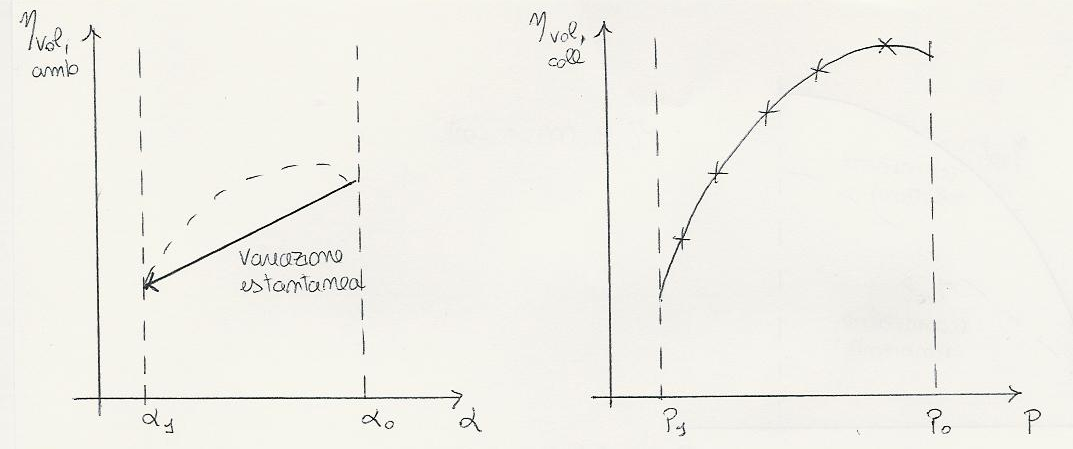 ηvol,
amb
Variazione
estantanea
α₁
α₀
α
ηvol,
coll
P₁
P₀
P